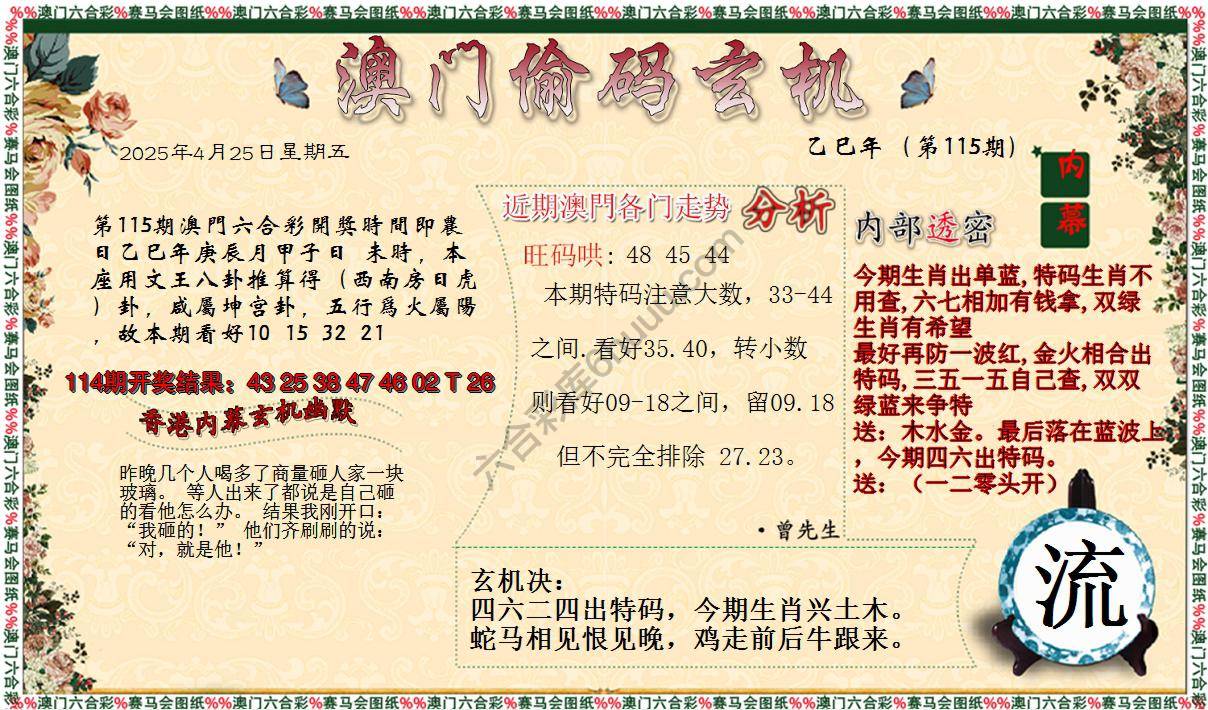 %%澳门六合彩%赛马会图纸%%澳门六合彩%赛马会图纸%%澳门六合彩%赛马会图纸%%澳门六合彩%赛马会图纸%%澳门六合彩%赛马会图纸%%澳门六合彩%赛马会图纸%%
澳门偷码玄机
2025年4月25日星期五
乙巳年（第115期）
内幕
第115期澳門六合彩開獎時間即農
日乙巳年庚辰月甲子日 未時，本
座用文王八卦推算得（西南房日虎
）卦，咸屬坤宫卦，五行爲火屬陽
，故本期看好10 15 32 21
114期开奖结果：43 25 38 47 46 02 T 26
香港内幕玄机幽默
昨晚几个人喝多了商量砸人家一块
玻璃。 等人出来了都说是自己砸
的看他怎么办。 结果我刚开口：
“我砸的！” 他们齐刷刷的说：
“对，就是他！”
近期澳門各门走势 分析
旺码哄: 48 45 44
本期特码注意大数，33-44
之间.看好35.40，转小数
则看好09-18之间，留09.18
但不完全排除 27.23。
·曾先生
内部透密
今期生肖出单蓝,特码生肖不
用查,六七相加有钱拿,双绿
生肖有希望
最好再防一波红,金火相合出
特码,三五一五自己查,双双
绿蓝来争特
送：木水金。最后落在蓝波上
，今期四六出特码。
送：（一二零头开）
玄机决：
四六二四出特码，今期生肖兴土木。
蛇马相见恨见晚，鸡走前后牛跟来。
流